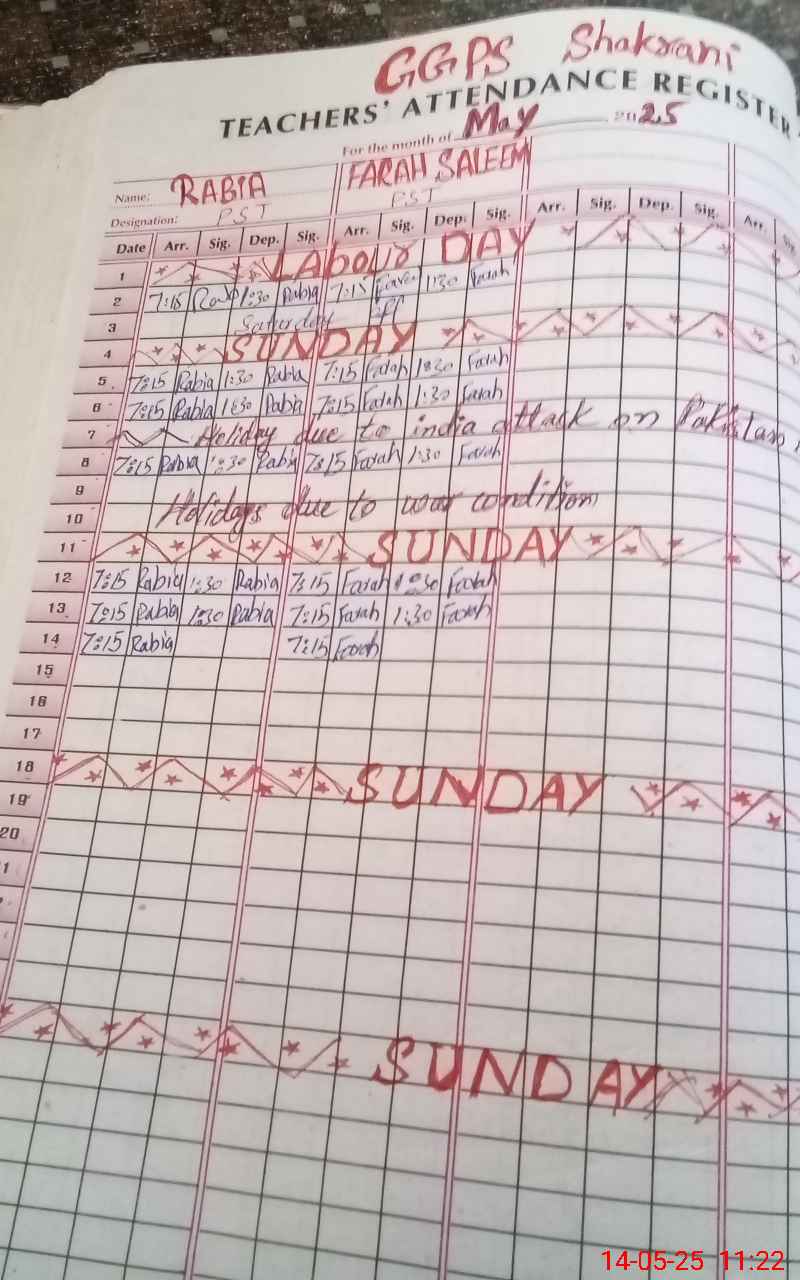 GGPS Shakrani
TEACHERS' ATTENDANCE REGISTER
For the month of May 2025
Name: RABIA FARAH SALEEM
Designation: PST PST
Date Arr. Sig. Dep. Sig. Arr. Sig. Dep. Sig. Arr. Sig. Dep. Sig. Arr.
1 LABOUR DAY
2 7:15 1:30 Rabia 7:15 Farah 1:30 Farah
3 Saturday off
4 SUNDAY
5 7:15 Rabia 1:30 Rabia 7:15 Farah 1:30 Farah
6 7:15 Rabia 1:30 Rabia 7:15 Farah 1:30 Farah
7 Holiday due to india attack on Pakistan
8 7:15 Rabia 1:30 Rabia 7:15 Farah 1:30 Farah
9
10 Holidays due to war condition
11 SUNDAY
12 7:15 Rabia 1:30 Rabia 7:15 Farah 1:30 Farah
13 7:15 Rabia 1:30 Rabia 7:15 Farah 1:30 Farah
14 7:15 Rabia 7:15 Farah
15
16
17
18 SUNDAY
19
20
1
SUNDAY
14-05-25 11:22